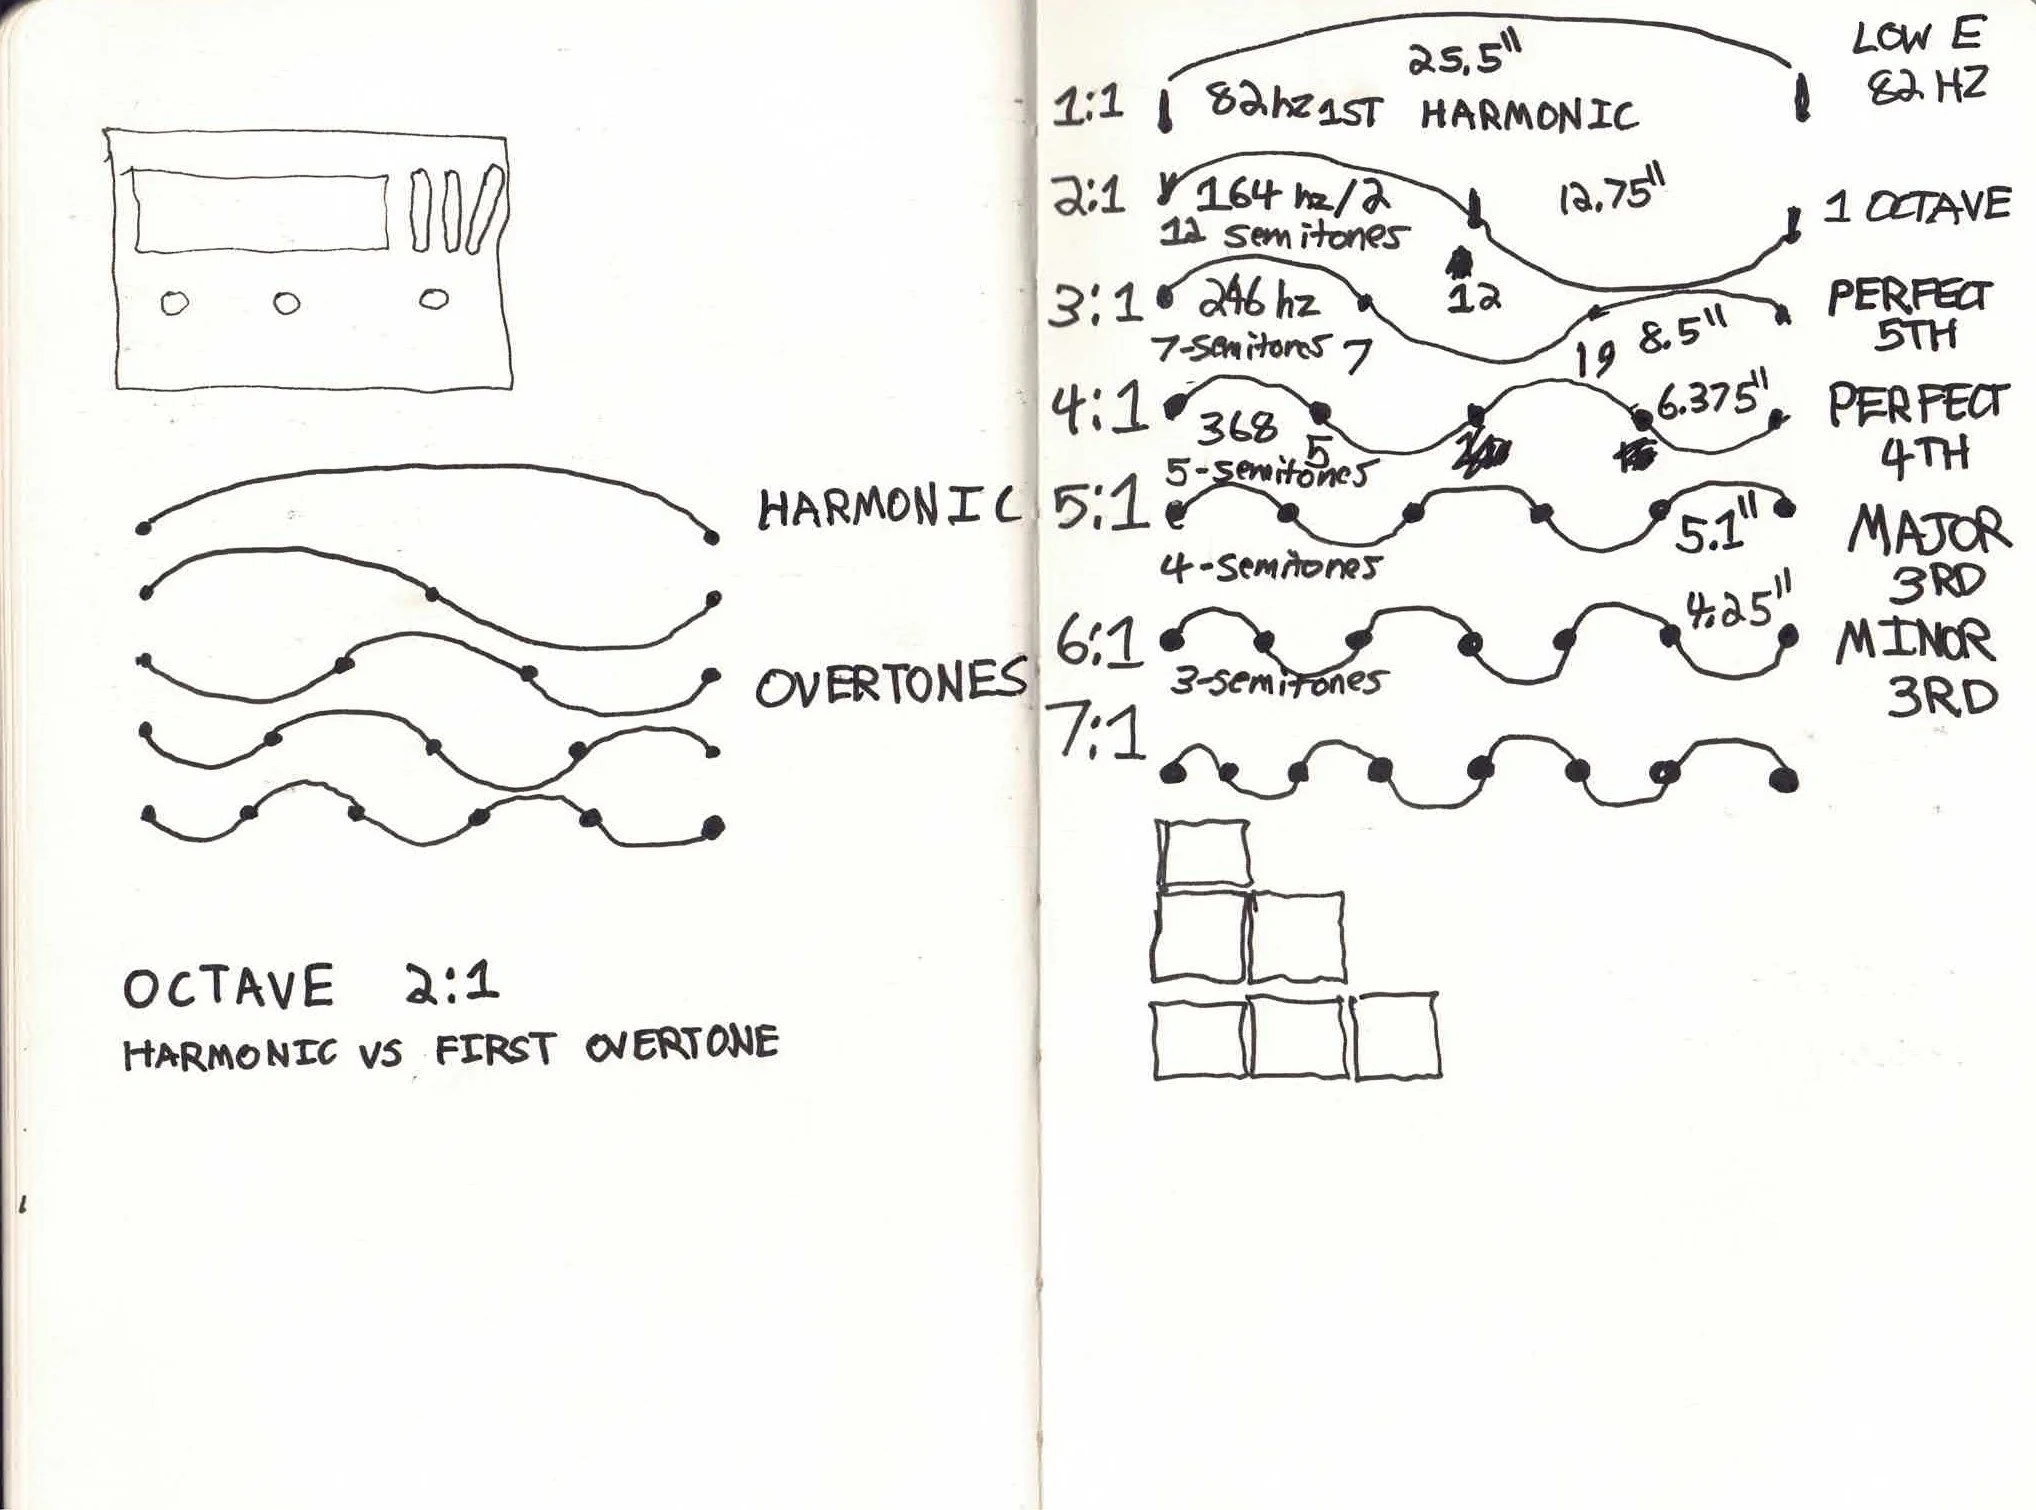 HARMONIC
OVERTONES
OCTAVE 2:1
HARMONIC VS FIRST OVERTONE
25.5"
LOW E
82 HZ
1:1 82hz 1ST HARMONIC
2:1 164 hz/2 12.75" 1 OCTAVE
12 semitones
12
3:1 246 hz 8.5" PERFECT
5TH
7-semitones 7 19
4:1 368 5 6.375" PERFECT
4TH
5-semitones
5:1 5.1" MAJOR
3RD
4-semitones
6:1 4.25" MINOR
3RD
3-semitones
7:1